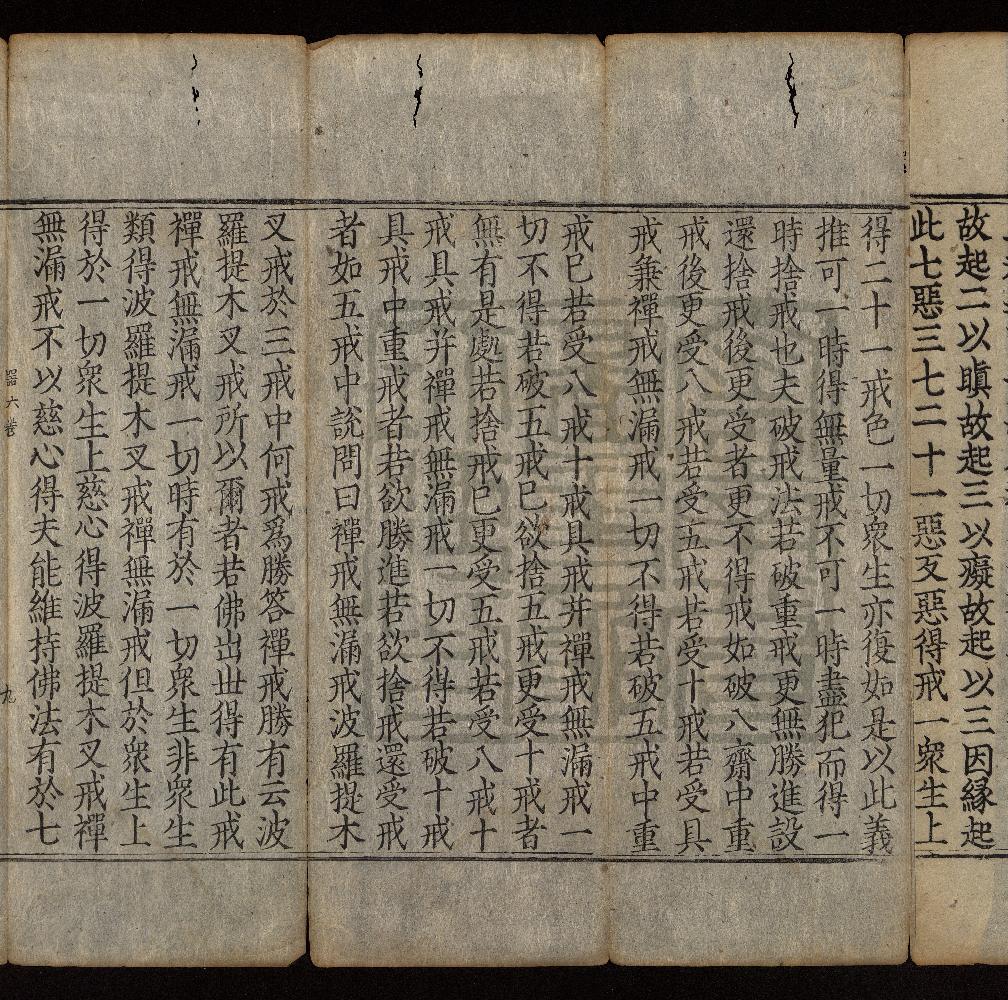 故起二以瞋故起三以癡故起以三因緣起
此七惡三七二十一惡反惡得戒一衆生上
得二十一戒色一切衆生亦復如是以此義
推可一時得無量戒不可一時盡犯而得一
時捨戒也夫破戒法若破重戒更無勝進設
還捨戒後更受者更不得戒如破八齋中重
戒後更受八戒若受五戒若受十戒若受具
戒兼禪戒無漏戒一切不得若破五戒中重
戒巳若受八戒十戒具戒并禪戒無漏戒一
切不得若破五戒巳欲捨五戒更受十戒者
無有是處若捨戒巳更受五戒若受八戒十
戒具戒并禪戒無漏戒一切不得若破十戒
具戒中重戒者若欲勝進若欲捨戒還受戒
者如五戒中說問曰禪戒無漏戒波羅提木
叉戒於三戒中何戒爲勝答禪戒勝有云波
羅提木叉戒所以爾者若佛出世得有此戒
禪戒無漏戒一切時有於一切衆生非衆生
類得波羅提木叉戒禪無漏戒但於衆生上
得於一切衆生上慈心得波羅提木叉戒禪
無漏戒不以慈心得夫能維持佛法有於七
器六卷 九